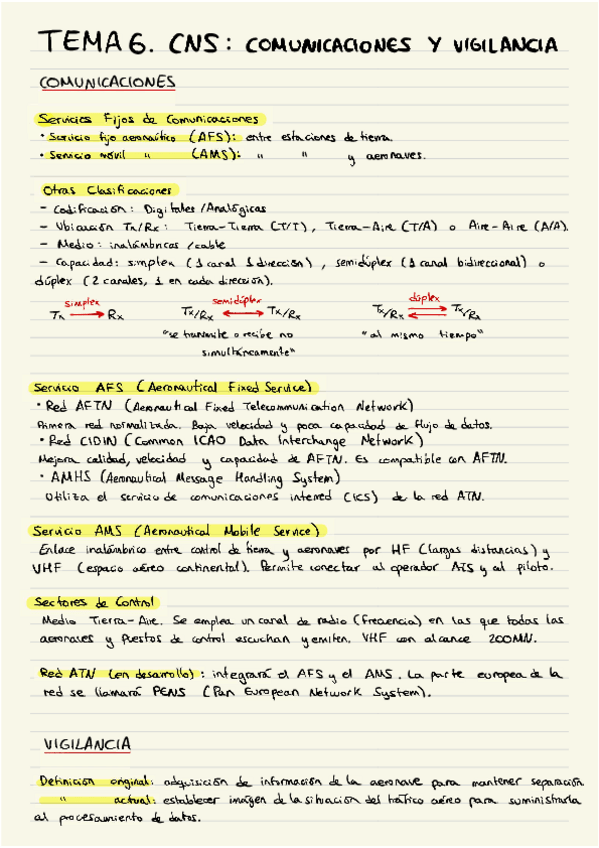 TEMA 6. CNS: COMUNICACIONES Y VIGILANCIA
COMUNICACIONES
Servicios Fijos de Comunicaciones
• Servicio fijo aeronaútico (AFS): entre estaciones de tierra.
• Servicio móvil " (AMS): " " y aeronaves.
Otras Clasificaciones
- Codificación: Digitales/Analógicas
- Ubicación Tx/Rx: Tierra-Tierra (T/T), Tierra-Aire (T/A) o Aire-Aire (A/A).
- Medio: inalámbricas/cable
- Capacidad: simplex (1 canal 1 dirección), semidúplex (1 canal bidireccional) o
dúplex (2 canales, 1 en cada dirección).
simplex semidúplex dúplex
Tx Rx Tx/Rx Tx/Rx Tx/Rx Tx/Rx
"se transmite o recibe no "al mismo tiempo"
simultáneamente"
Servicio AFS (Aeronautical Fixed Service)
• Red AFTN (Aeronautical Fixed Telecommunication Network)
Primera red normalizada. Baja velocidad y poca capacidad de flujo de datos.
• Red CIDIN (Common ICAO Data Interchange Network)
Mejora calidad, velocidad y capacidad de AFTN. Es compatible con AFTN.
• AMHS (Aeronautical Message Handling System)
Utiliza el servicio de comunicaciones interred (ICS) de la red ATN.
Servicio AMS (Aeronautical Mobile Service)
Enlace inalámbrico entre control de tierra y aeronaves por HF (largas distancias) y
VHF (espacio aéreo continental). Permite conectar al operador ATS y al piloto.
Sectores de Control
Medio Tierra-Aire. Se emplea un canal de radio (frecuencia) en las que todas las
aeronaves y puestos de control escuchan y emiten. VHF con alcance 200MN.
Red ATN (en desarrollo): integrará el AFS y el AMS. La parte europea de la
red se llamará PENS (Pan European Network System).
VIGILANCIA
Definición original: adquisición de información de la aeronave para mantener separación
" actual: establecer imagen de la situación del tráfico aéreo para suministrarla
al procesamiento de datos.